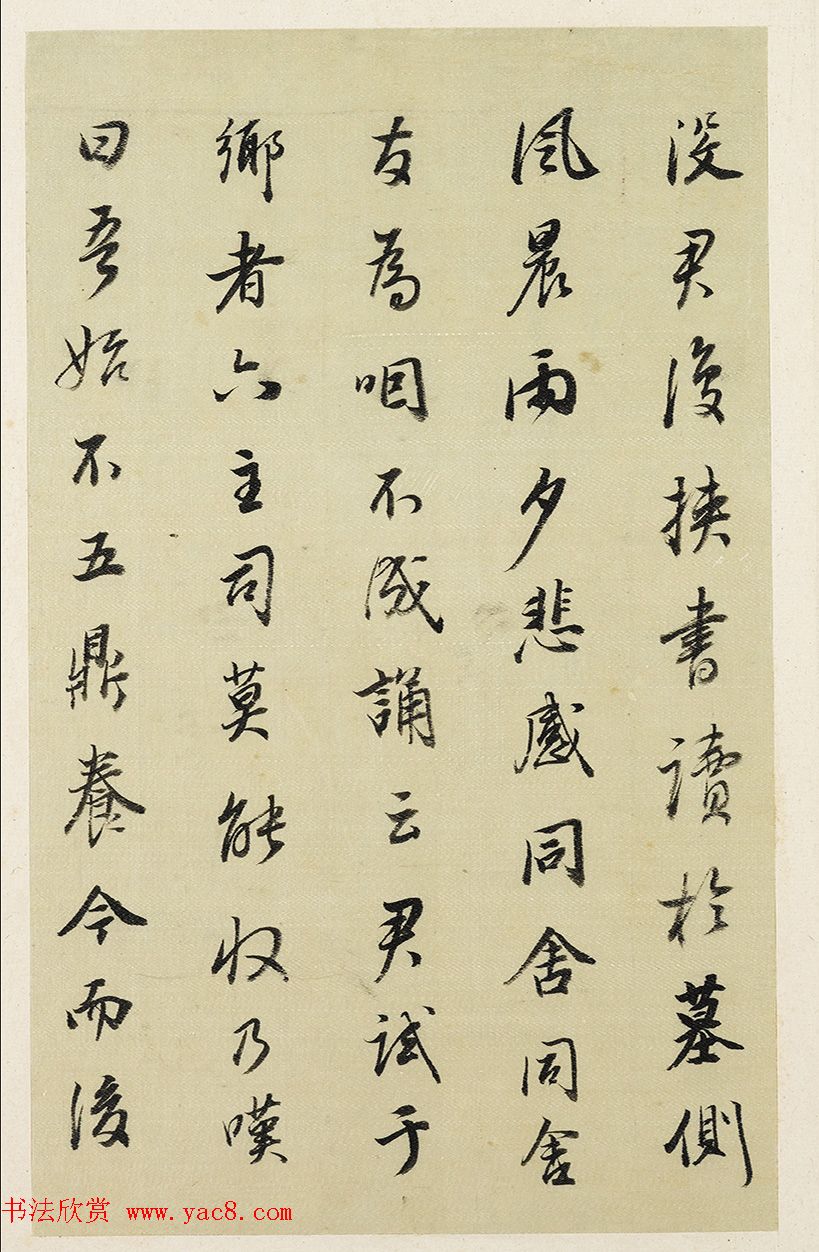 沒君復挾書讀於墓側
風晨雨夕悲感同舍同舍
友為咽不成誦云君試于
鄉者六主司莫能收乃嘆
曰吾始不五鼎養今而後
书法欣赏 www.yac8.com